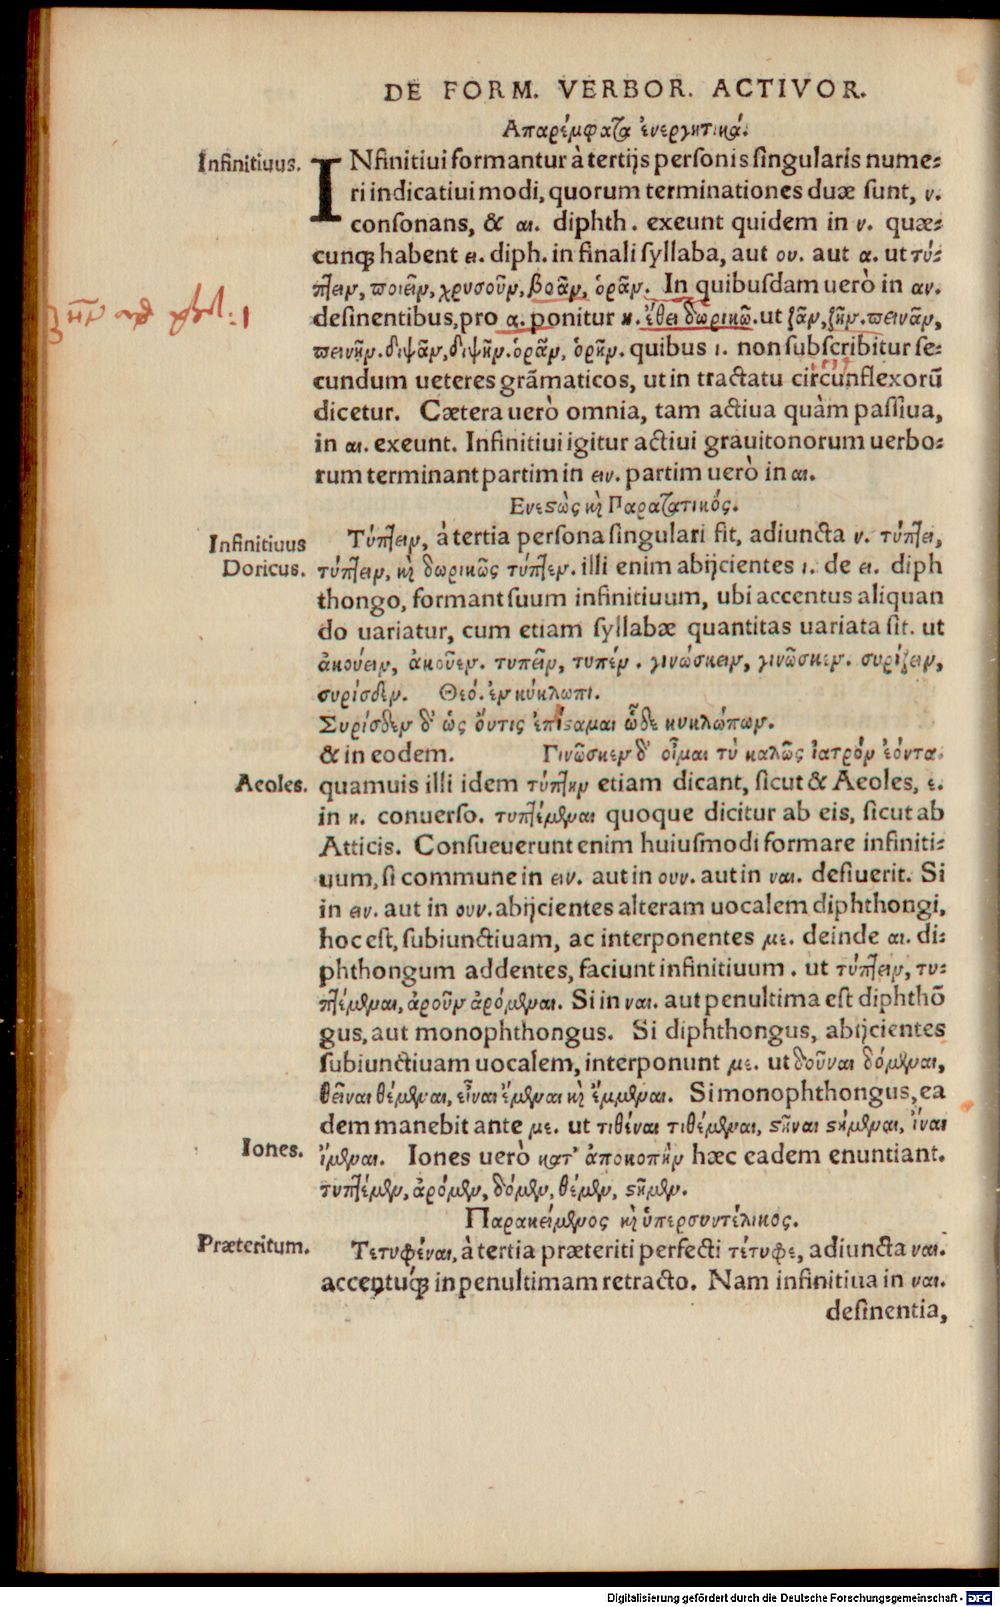 DE FORM. VERBOR. ACTIVOR.
Απαρέμφατα ἐνεργητικά.
Infinitiuus.
INfinitiui formantur à tertijs personis singularis nume-
ri indicatiui modi, quorum terminationes duæ sunt, ν.
consonans, & αι. diphth. exeunt quidem in ν. quæ-
cunq; habent ει. diph. in finali syllaba, aut ου. aut α. ut τύ-
πτειν, ποιεῖν, χρυσοῦν, βοᾶν, ὁρᾶν. In quibusdam uerò in αν.
desinentibus, pro α. ponitur η. ἔθει δωρικῷ. ut ζᾶν, ζῆν. πεινᾶν,
πεινῆν. διψᾶν, διψῆν. ὁρᾶν, ὁρῆν. quibus ι. non subscribitur se-
cundum ueteres grãmaticos, ut in tractatu circunflexorũ
dicetur. Cætera uerò omnia, tam actiua quàm passiua,
in αι. exeunt. Infinitiui igitur actiui grauitonorum uerbo-
rum terminant partim in ειν. partim uerò in αι.
Ενεστὼς καὶ Παρατατικός.
Infinitiuus
Doricus.
Τύπτειν, à tertia persona singulari fit, adiuncta ν. τύπτει,
τύπτειν, καὶ δωρικῶς τύπτεν. illi enim abijcientes ι. de ει. diph
thongo, formant suum infinitiuum, ubi accentus aliquan
do uariatur, cum etiam syllabæ quantitas uariata sit. ut
ἀκούειν, ἀκοῦεν. τυπεῖν, τυπέν. γινώσκειν, γινῶσκεν. συρίζειν,
συρίσδεν. Θεό. ἐν κύκλωπι.
Συρίσδεν δ' ὡς οὔτις ἐπίσαμαι ὧδε κυκλώπων.
& in eodem. Γινῶσκεν δ' οἶμαι τὺ καλῶς ἰατρὸν ἐόντα.
Aeoles.
quamuis illi idem τύπτην etiam dicant, sicut & Aeoles, ε.
in η. conuerso. τυπτέμεναι quoque dicitur ab eis, sicut ab
Atticis. Consueuerunt enim huiusmodi formare infiniti-
uum, si commune in ειν. aut in ουν. aut in ναι. desiuerit. Si
in ειν. aut in ουν. abijcientes alteram uocalem diphthongi,
hoc est, subiunctiuam, ac interponentes με. deinde αι. di-
phthongum addentes, faciunt infinitiuum. ut τύπτειν, τυ-
πτέμεναι, ἀροῦν ἀρόμεναι. Si in ναι. aut penultima est diphthõ
gus, aut monophthongus. Si diphthongus, abijcientes
subiunctiuam uocalem, interponunt με. ut δοῦναι δόμεναι,
θεῖναι θέμεναι, εἶναι ἔμεναι καὶ ἔμμεναι. Si monophthongus, ea
dem manebit ante με. ut τιθέναι τιθέμεναι, στῆναι στήμεναι, ἵναι
Iones.
ἵμεναι. Iones uerò κατ' ἀποκοπὴν hæc eadem enuntiant.
τυπτέμεν, ἀρόμεν, δόμεν, θέμεν, στῆμεν.
Παρακείμενος καὶ ὑπερσυντέλικος.
Præteritum.
Τετυφέναι, à tertia præteriti perfecti τέτυφε, adiuncta ναι.
accentuq; in penultimam retracto. Nam infinitiua in ναι.
desinentia,
Digitalisierung gefördert durch die Deutsche Forschungsgemeinschaft - DFG